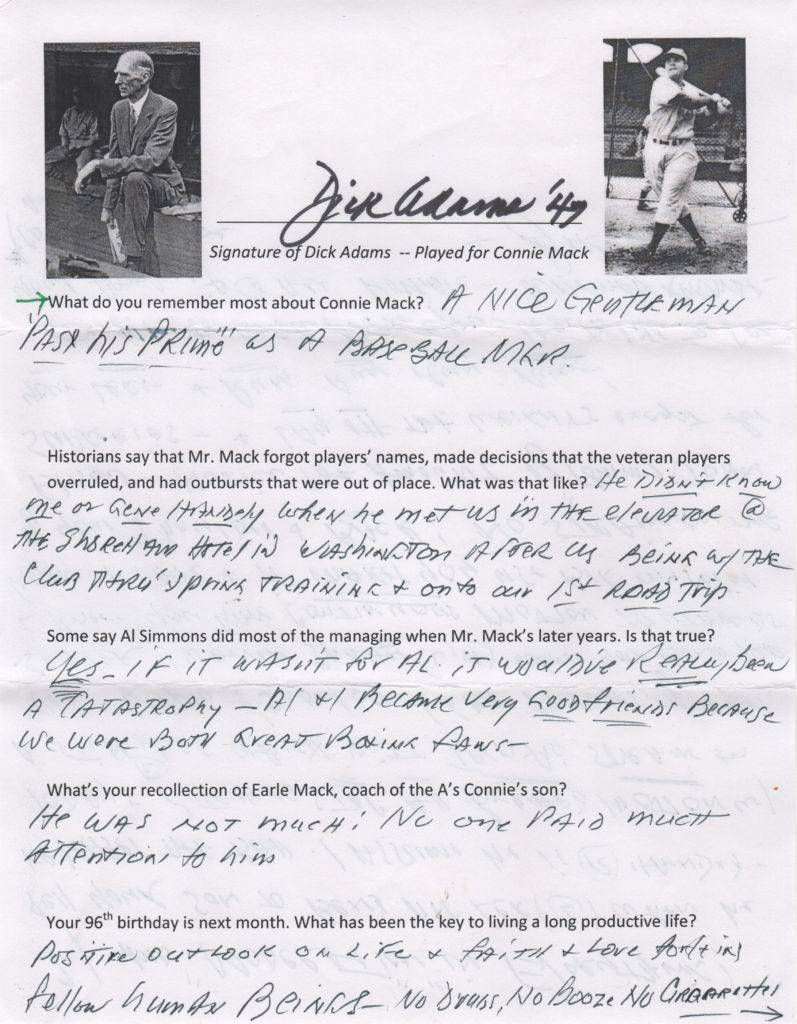 Dick Adams '47
Signature of Dick Adams -- Played for Connie Mack
What do you remember most about Connie Mack? A NICE GENTLEMAN
"PAST his PRIME" as A BASEBALL MGR.
Historians say that Mr. Mack forgot players' names, made decisions that the veteran players
overruled, and had outbursts that were out of place. What was that like? He DIDN'T KNOW
me or GENE HANDLEY when he met us in THE elevator @
THE SHOREHAM HOTEL in WASHINGTON AFTER US BEING w/ THE
Club THRU' SPRING TRAINING & onto our 1st ROAD Trip
Some say Al Simmons did most of the managing when Mr. Mack's later years. Is that true?
Yes - IF it WASNT for AL. it WOULD'VE REALLY Been
A CATASTROPHY - Al & I BECAME Very GOOD friends BECAUSE
We were BOTH GREAT BOXING FANS -
What's your recollection of Earle Mack, coach of the A's Connie's son?
He WAS NOT much! No one PAID much
Attention to him
Your 96th birthday is next month. What has been the key to living a long productive life?
Positive outlook on Life & FAITH & Love for
fellow human BEINGS - No DRUGS, No Booze No CIGARETTES